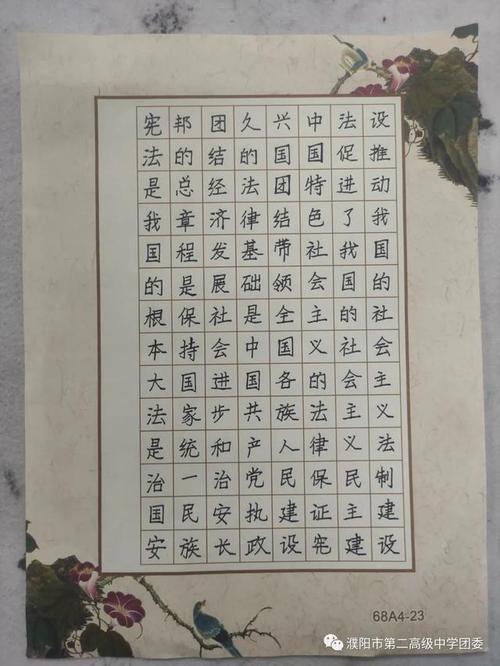 宪法是我国的根本大法是治国安
邦的总章程是保持国家统一民族
团结经济发展社会进步和治安长
久的法律基础是中国共产党执政
兴国团结带领全国各族人民建设
中国特色社会主义的法律保证宪
法促进了我国的社会主义民主建
设推动我国的社会主义法制建设
68A4-23
濮阳市第二高级中学团委